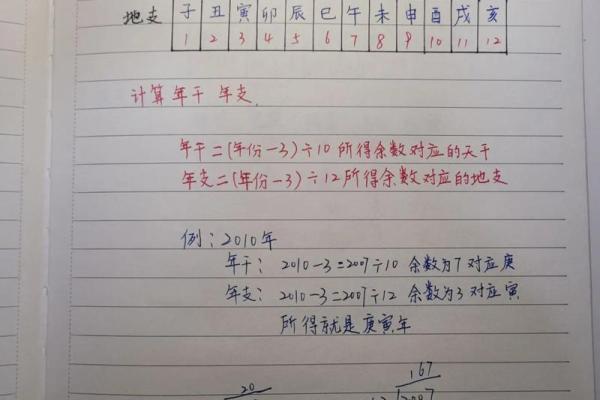 地支 子 丑 寅 卯 辰 巳 午 未 申 酉 戌 亥
1 2 3 4 5 6 7 8 9 10 11 12
计算年干 年支.
年干=(年份-3)÷10 所得余数对应的天干
年支=(年份-3)÷12 所得余数对应的地支
例：2010年
年干： 2010-3=2007÷10 余数为7 对应庚
年支： 2010-3=2007÷12 余数为3 对应寅
所得就是庚寅年
167
20